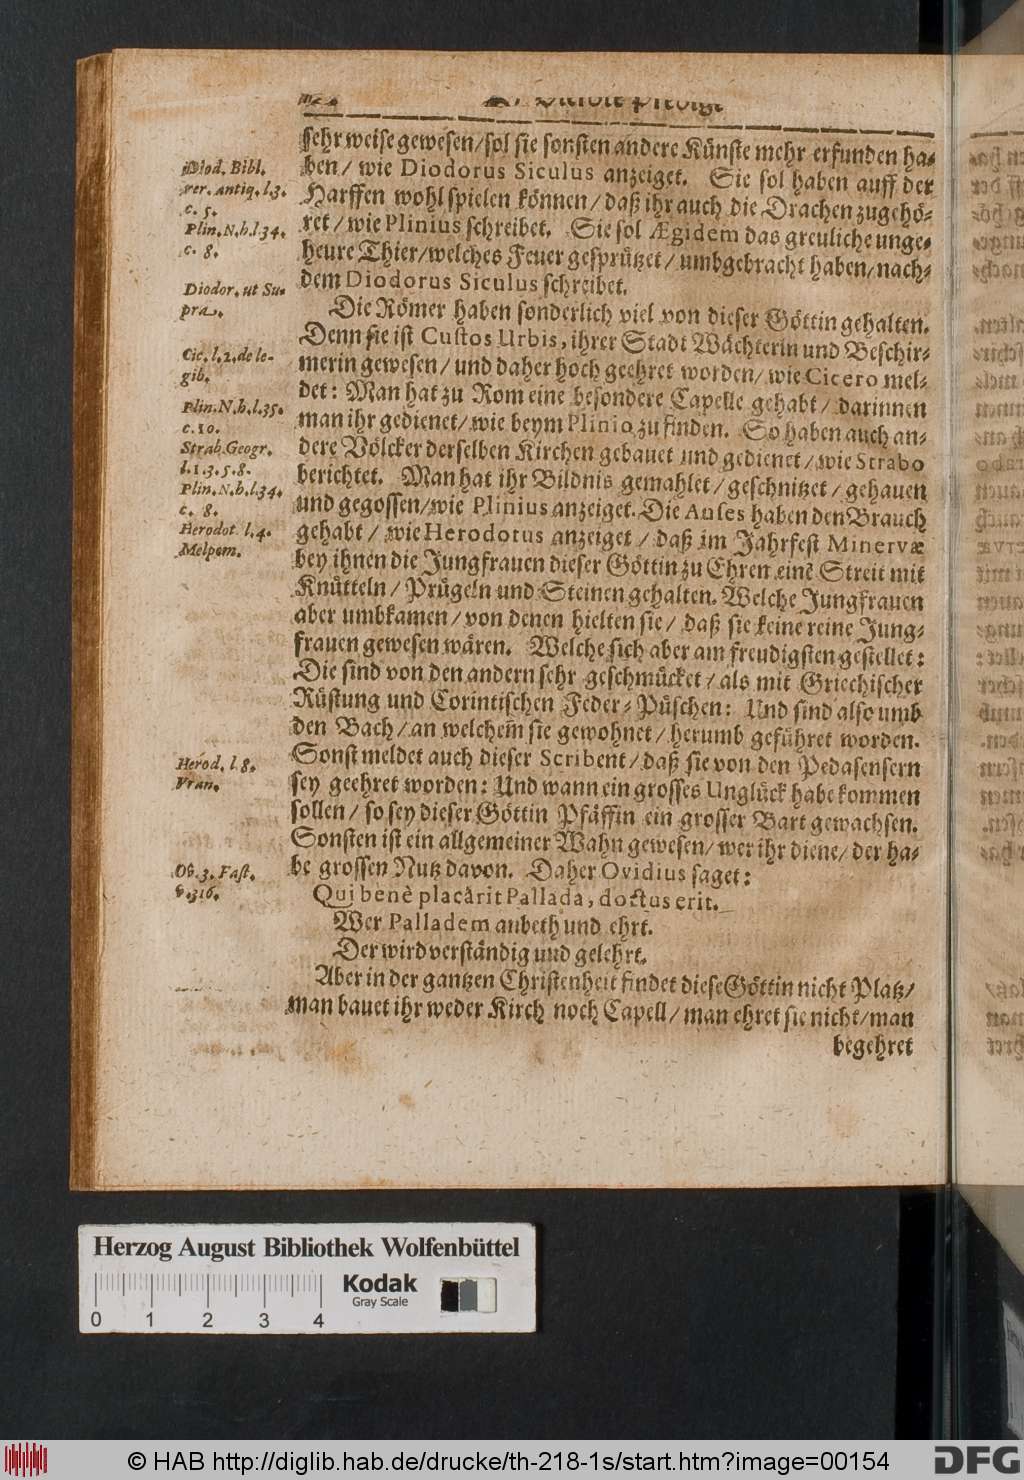 sehr weise gewesen/sol sie sonsten andere Künste mehr erfunden ha-
ben/ wie Diodorus Siculus anzeiget. Sie sol haben auff der
Harffen wohl spielen können/ daß ihr auch die Drachen zugehö-
ret/ wie Plinius schreibet. Sie sol Ægidem das greuliche unge-
heure Thier/welches Feuer gesprützet/ umbgebracht haben/nach-
dem Diodorus Siculus schreibet.
Diod. Bibl.
rer. antiq. l. 3.
c. 5.
Plin. N. h. l. 34.
c. 8.
Diodor. ut Su-
pra.
Die Römer haben sonderlich viel von dieser Göttin gehalten.
Denn sie ist Custos Urbis, ihrer Stadt Wächterin und Beschir-
merin gewesen/ und daher hoch geehret worden/ wie Cicero mel-
det: Man hat zu Rom eine besondere Capelle gehabt/ darinnen
man ihr gedienet/ wie beym Plinio zu finden. So haben auch an-
dere Völcker derselben Kirchen gebauet und gedienet/ wie Strabo
berichtet. Man hat ihr Bildnis gemahlet/ geschnitzet/ gehauen
und gegossen/wie Plinius anzeiget. Die Auses haben den Brauch
gehabt/ wie Herodotus anzeiget/ daß im Jahrfest Minervæ
bey ihnen die Jungfrauen dieser Göttin zu Ehren einē Streit mit
Knütteln/ Prügeln und Steinen gehalten. Welche Jungfrauen
aber umbkamen/ von denen hielten sie/ daß sie keine reine Jung-
frauen gewesen wären. Welche sich aber am freudigsten gestellet:
Die sind von den andern sehr geschmücket/ als mit Griechischer
Rüstung und Corintischen Feder-Püschen: Und sind also umb
den Bach/ an welchem sie gewohnet/ herumb geführet worden.
Sonst meldet auch dieser Scribent/ daß sie von den Pedasensern
sey geehret worden: Und wann ein grosses Unglück habe kommen
sollen/ so sey dieser Göttin Pfäffin ein grosser Bart gewachsen.
Sonsten ist ein allgemeiner Wahn gewesen/ wer ihr diene/ der ha-
be grossen Nutz davon. Daher Ovidius saget:
Cic. l. 2. de le-
gib.
Plin. N. h. l. 35.
c. 10.
Strab. Geogr.
l. 1. 3. 5. 8.
Plin. N. h. l. 34.
c. 8.
Herodot. l. 4.
Melpom.
Herod. l. 8.
Vran.
Ov. 3. Fast.
v. 316.
Qui benè placârit Pallada, doctus erit.
Wer Palladem anbeth und ehrt.
Der wird verständig und gelehrt.
Aber in der gantzen Christenheit findet diese Göttin nicht Platz/
man bauet ihr weder Kirch noch Capell/ man ehret sie nicht/ man
begehret
Herzog August Bibliothek Wolfenbüttel
Kodak
Gray Scale
0 1 2 3 4
© HAB http://diglib.hab.de/drucke/th-218-1s/start.htm?image=00154
DFG